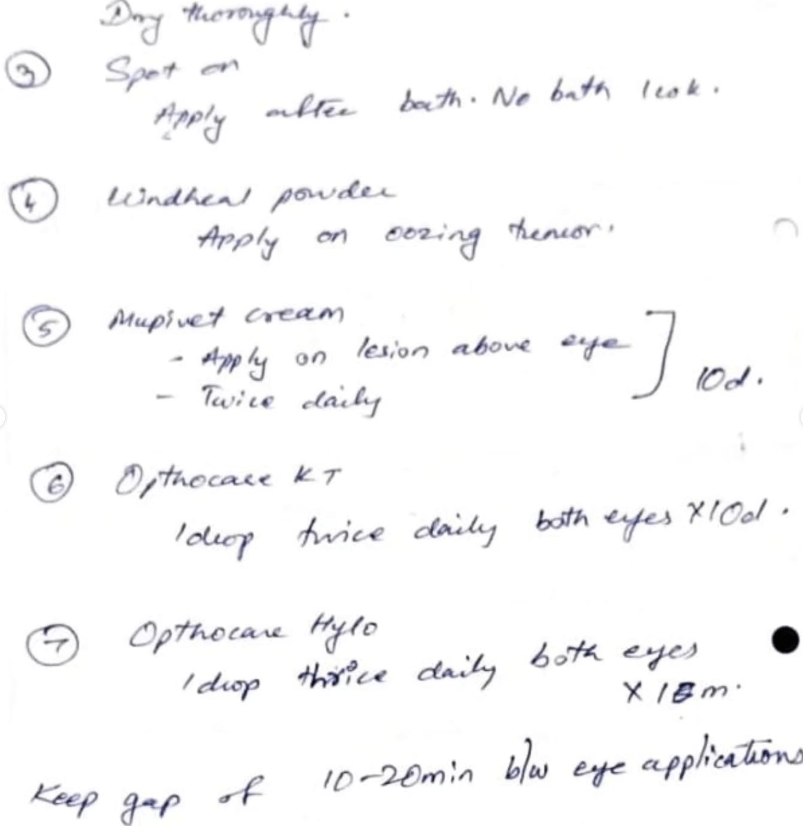 Dry thoroughly.
③ Spot on
Apply after bath. No bath 1 .
④ Windheal powder
Apply on oozing .
⑤ Mupivet cream
- Apply on lesion above eye ] 10d.
- Twice daily
⑥ Opthocare KT
1 drop twice daily both eyes X10d.
⑦ Opthocare Hylo
1 drop thrice daily both eyes
X 1 m.
Keep gap of 10-20min b/w eye applications